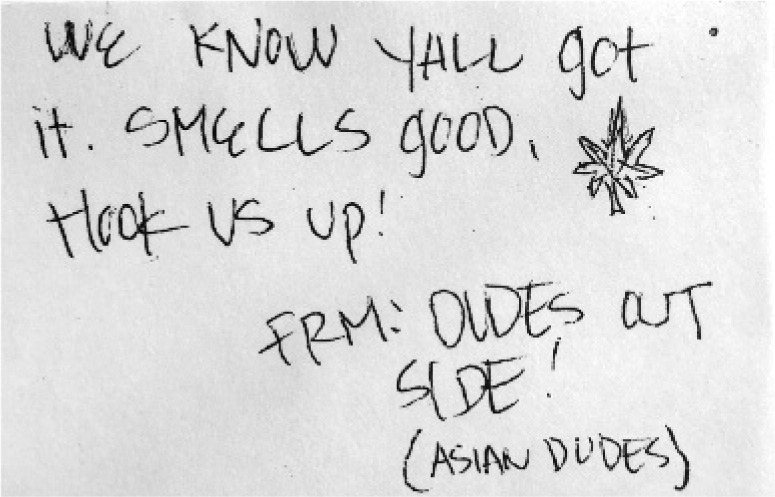 WE KNOW YALL got
it. SMELLS gOOD.
Hook US up!
FRM: DUDES OUT
SIDE!
(ASIAN DUDES)